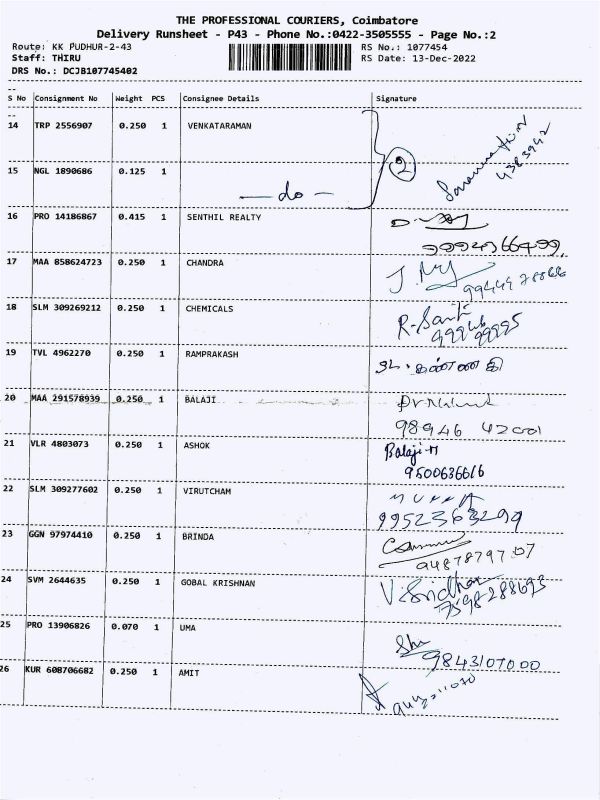 THE PROFESSIONAL COURIERS, Coimbatore
Delivery Runsheet - P43 - Phone No.:0422-3505555 - Page No.:2
Route: KK PUDHUR-2-43 RS No.: 1077454
Staff: THIRU RS Date: 13-Dec-2022
DRS No.: DCJB107745402
--
S No Consignment No Weight PCS Consignee Details Signature
--
14 TRP 2556907 0.250 1 VENKATARAMAN
4383942
15 NGL 1890686 0.125 1 2
— do —
16 PRO 14186867 0.415 1 SENTHIL REALTY
17 MAA 858624723 0.250 1 CHANDRA
18 SLM 309269212 0.250 1 CHEMICALS
99946 99995
19 TVL 4962270 0.250 1 RAMPRAKASH
20 MAA 291578939 0.250 1 BALAJI
98946 42001
21 VLR 4803073 0.250 1 ASHOK Balaji-M
9500636616
22 SLM 309277602 0.250 1 VIRUTCHAM
9952363299
23 GGN 97974410 0.250 1 BRINDA
9487879707
24 SVM 2644635 0.250 1 GOBAL KRISHNAN V. Sridhar
7598288693
25 PRO 13906826 0.070 1 UMA
9843107000
26 KUR 608706682 0.250 1 AMIT